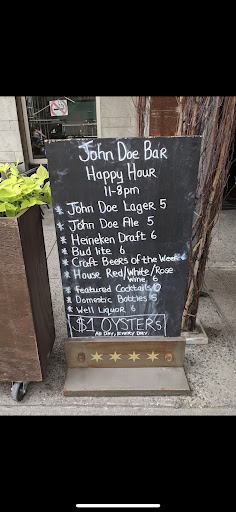 John Doe Bar
Happy Hour
11-8pm
* John Doe Lager 5
* John Doe Ale 5
* Heineken Draft 6
* Bud lite 6
* Craft Beers of the Week 6
* House Red/White/Rose
Wine 6
* featured Cocktails 10
* Domestic Bottles 5
* Well Liquor 6
$1 OYSTERS
All Day, Every Day